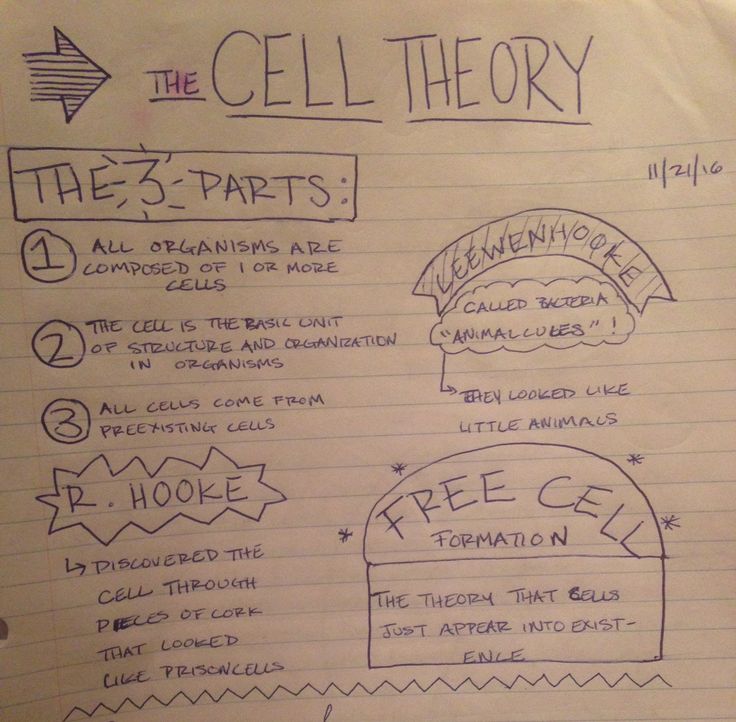 THE CELL THEORY
11/21/16
THE 3 PARTS:
1 ALL ORGANISMS ARE
COMPOSED OF 1 OR MORE
CELLS
2 THE CELL IS THE BASIC UNIT
OF STRUCTURE AND ORGANIZATION
IN ORGANISMS
3 ALL CELLS COME FROM
PREEXISTING CELLS
LEEWENHOOKE
CALLED BACTERIA
"ANIMALCULES"!
THEY LOOKED LIKE
LITTLE ANIMALS
R. HOOKE
DISCOVERED THE
CELL THROUGH
PIECES OF CORK
THAT LOOKED
LIKE PRISONCELLS
FREE CELL
FORMATION
THE THEORY THAT CELLS
JUST APPEAR INTO EXIST-
ENCE